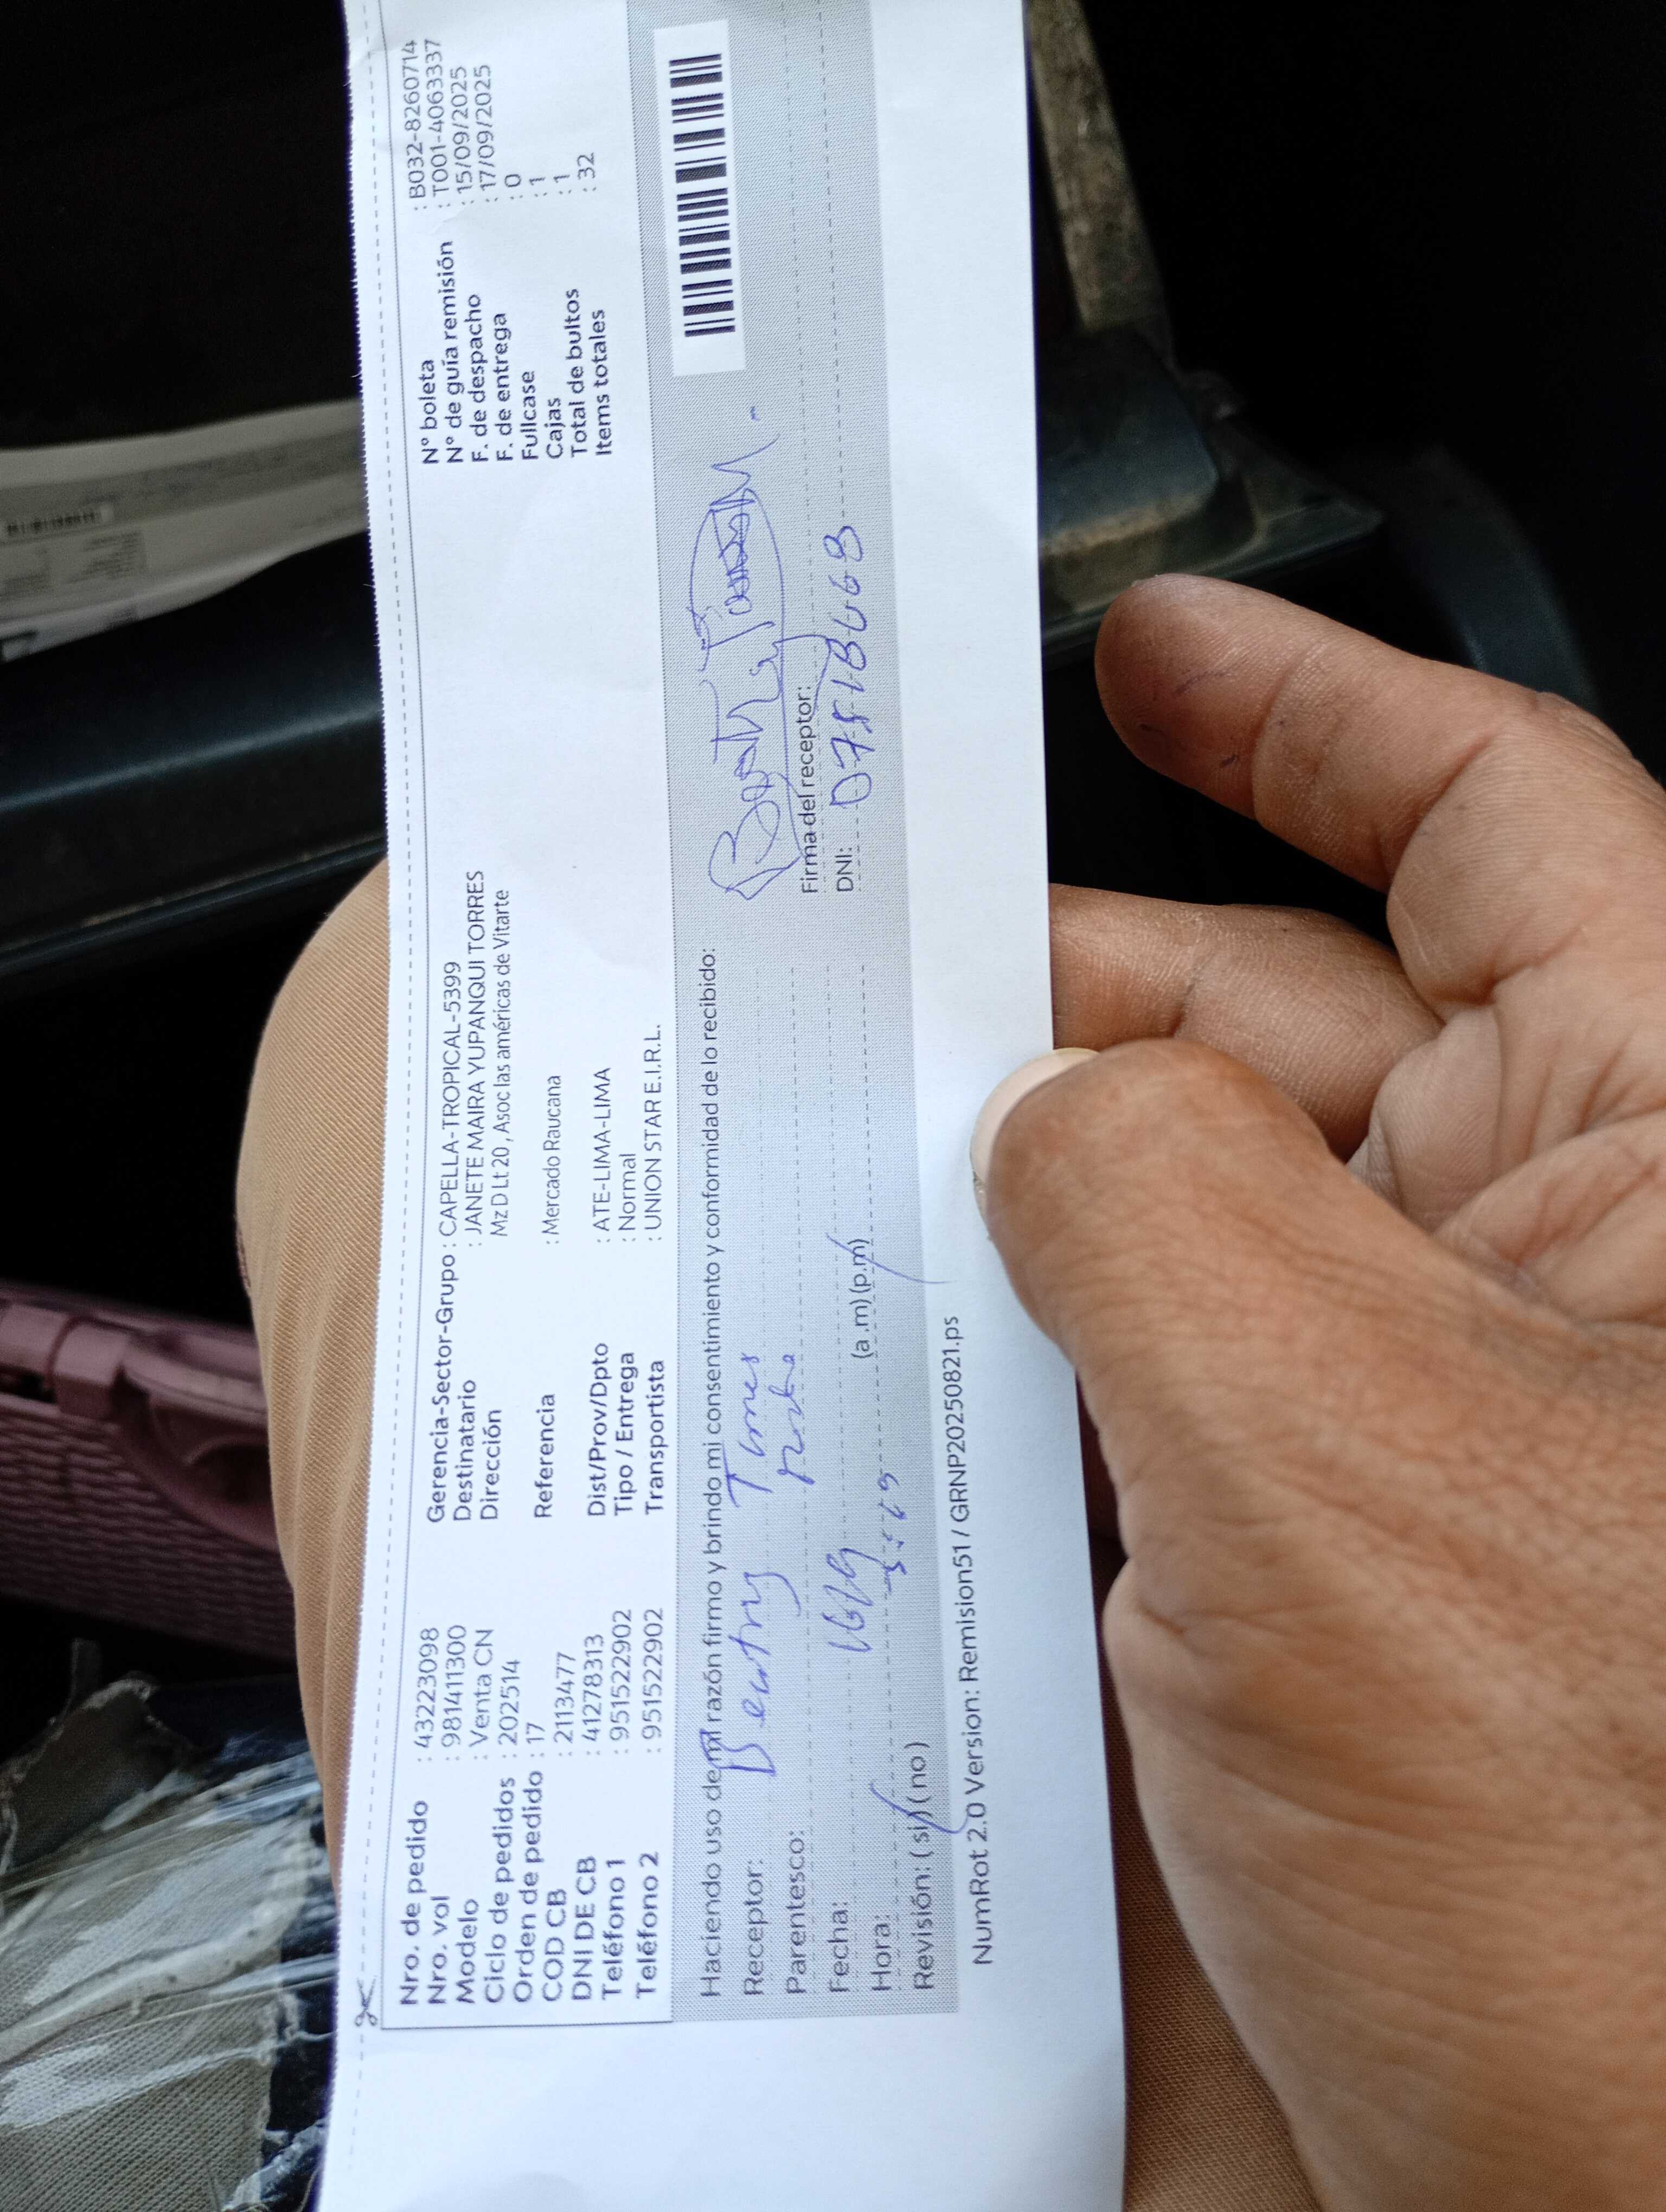 Nro. de pedido : 43223098
Nro. vol : 981411300
Modelo : Venta CN
Ciclo de pedidos : 202514
Orden de pedido : 17
COD CB : 2113477
DNI DE CB : 41278313
Teléfono 1 : 951522902
Teléfono 2 : 951522902
Gerencia-Sector-Grupo : CAPELLA-TROPICAL-5399
Destinatario : JANETE MAIRA YUPANQUI TORRES
Dirección Mz D Lt 20 , Asoc las américas de Vitarte
Referencia : Mercado Raucana
Dist/Prov/Dpto : ATE-LIMA-LIMA
Tipo / Entrega : Normal
Transportista : UNION STAR E.I.R.L.
N° boleta : B032-8260714
N° de guía remisión : T001-4063337
F. de despacho : 15/09/2025
F. de entrega : 17/09/2025
Fullcase : 0
Cajas : 1
Total de bultos : 1
Items totales : 32
Haciendo uso de mi razón firmo y brindo mi consentimiento y conformidad de lo recibido:
Receptor: Torres
Parentesco:
Fecha:
Hora: (a.m) (p.m)
Revisión: ( si ) ( no )
Firma del receptor:
DNI:
NumRot 2.0 Version: Remision51 / GRNP20250821.ps